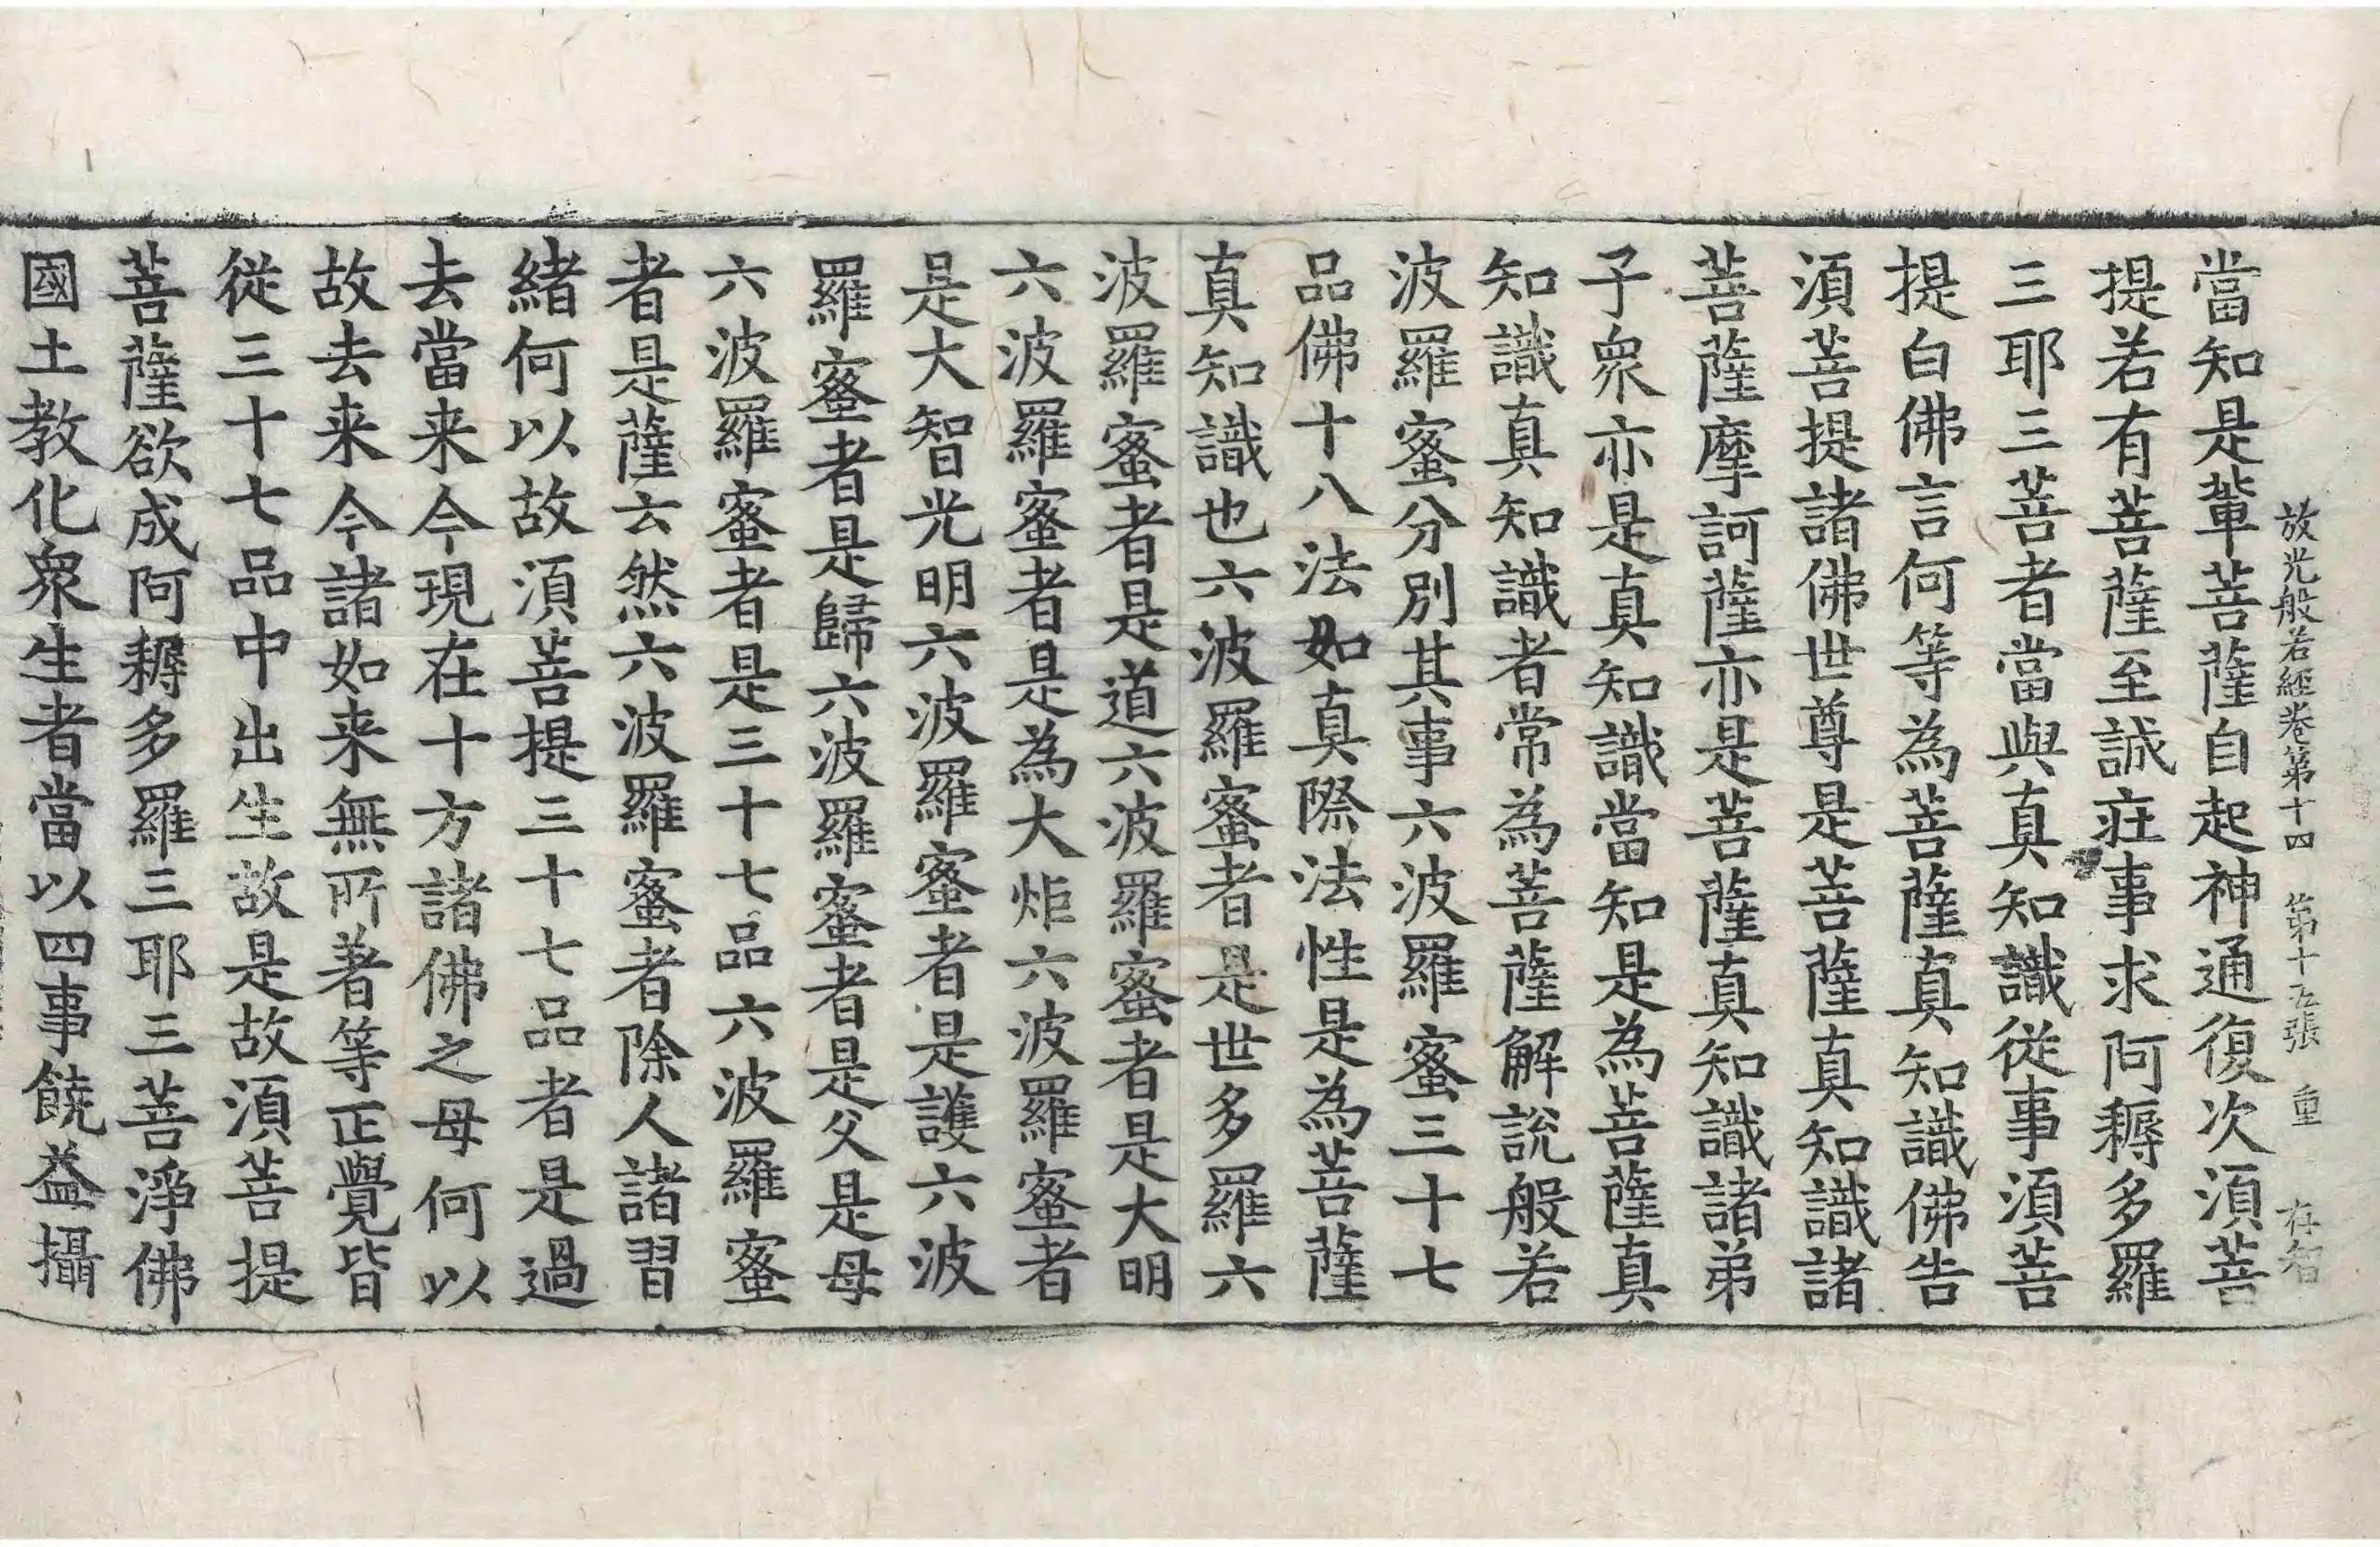 放光般若經卷第十四 第十五張 重 存智
當知是輩菩薩自起神通復次須菩
提若有菩薩至誠疰事求阿耨多羅
三耶三菩者當與真知識從事須菩
提白佛言何等為菩薩真知識佛告
須菩提諸佛世尊是菩薩真知識諸
菩薩摩訶薩亦是菩薩真知識諸弟
子衆亦是真知識當知是為菩薩真
知識真知識者常為菩薩解說般若
波羅蜜分別其事六波羅蜜三十七
品佛十八法如真際法性是為菩薩
真知識也六波羅蜜者是世多羅六
波羅蜜者是道六波羅蜜者是大明
六波羅蜜者是為大炬六波羅蜜者
是大智光明六波羅蜜者是護六波
羅蜜者是歸六波羅蜜者是父是母
六波羅蜜者是三十七品六波羅蜜
者是薩云然六波羅蜜者除人諸習
緒何以故須菩提三十七品者是過
去當来今現在十方諸佛之母何以
故去来今諸如来無所著等正覺皆
從三十七品中出生故是故須菩提
菩薩欲成阿耨多羅三耶三菩淨佛
國土教化衆生者當以四事饒益攝